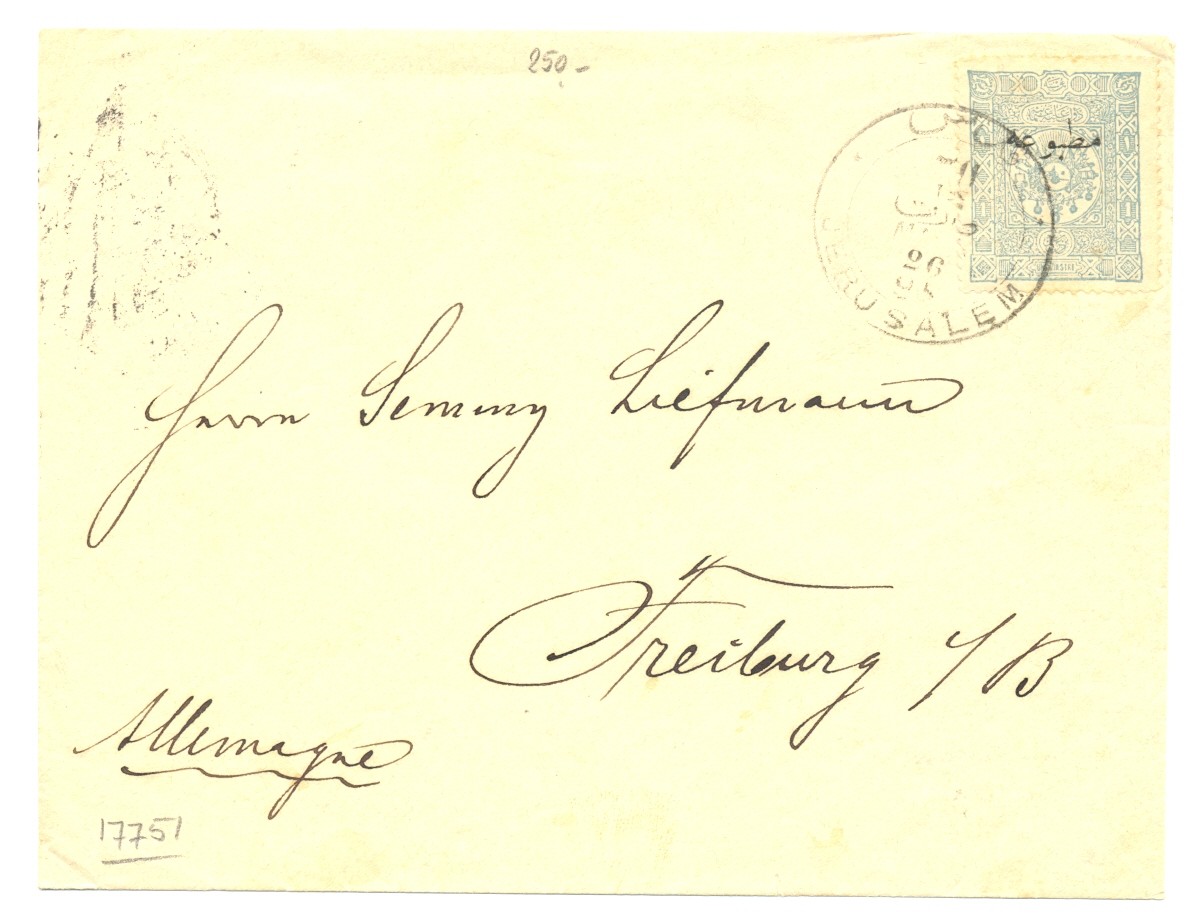 250 –
مطبوعه
JERUSALEM
Herrn Semmy Liefmann
Freiburg i/B
Allemagne
17751